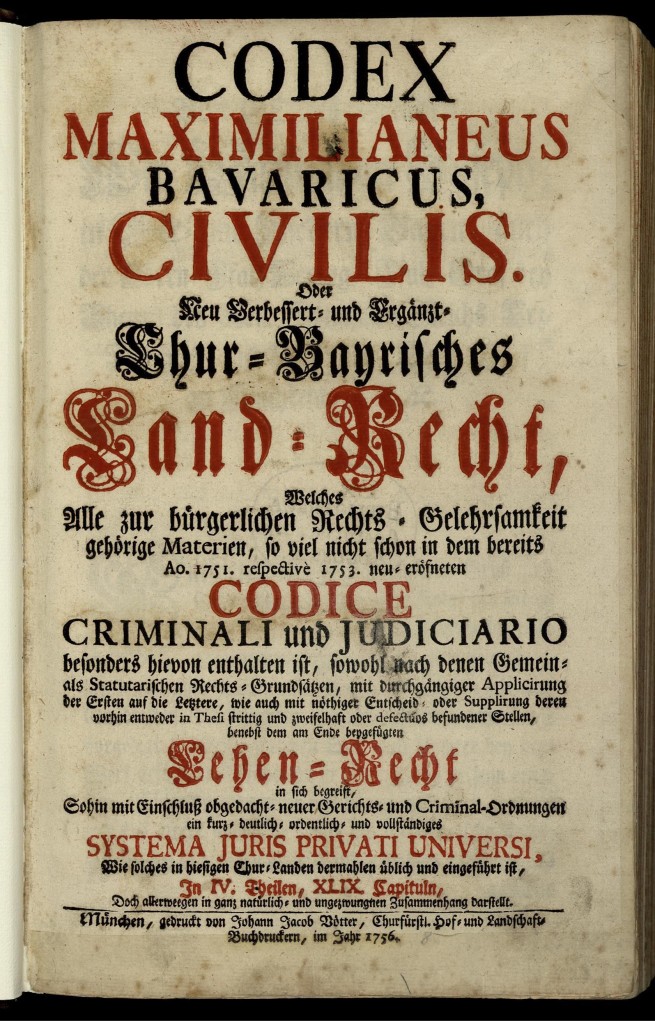 CODEX
MAXIMILIANEUS
BAVARICUS,
CIVILIS.
Oder
Neu Verbessert- und Ergänzt-
Chur-Bayrisches
Land-Recht,
Welches
Alle zur bürgerlichen Rechts-Gelehrsamkeit
gehörige Materien, so viel nicht schon in dem bereits
Ao. 1751. respectivè 1753. neu-eröfneten
CODICE
CRIMINALI und JUDICIARIO
besonders hievon enthalten ist, sowohl nach denen Gemein-
als Statutarischen Rechts-Grundsätzen, mit durchgängiger Applicirung
der Ersten auf die Letztere, wie auch mit nöthiger Entscheid- oder Supplirung deren
vorhin entweder in Thesi strittig und zweifelhaft oder defectuos befundener Stellen,
benebst dem am Ende beygefügten
Lehen-Recht
in sich begreift,
Sohin mit Einschluß obgedacht-neuer Gerichts- und Criminal-Ordnungen
ein kurz- deutlich- ordentlich- und vollständiges
SYSTEMA JURIS PRIVATI UNIVERSI,
Wie solches in hiesigen Chur-Landen dermahlen üblich und eingeführt ist,
In IV. Theilen, XLIX. Capituln,
Doch allerweegen in ganz natürlich- und ungezwungnen Zusammenhang darstellt.
München, gedruckt von Johann Jacob Vötter, Churfürstl. Hof- und Landschaft-
Buchdruckern, im Jahr 1756.